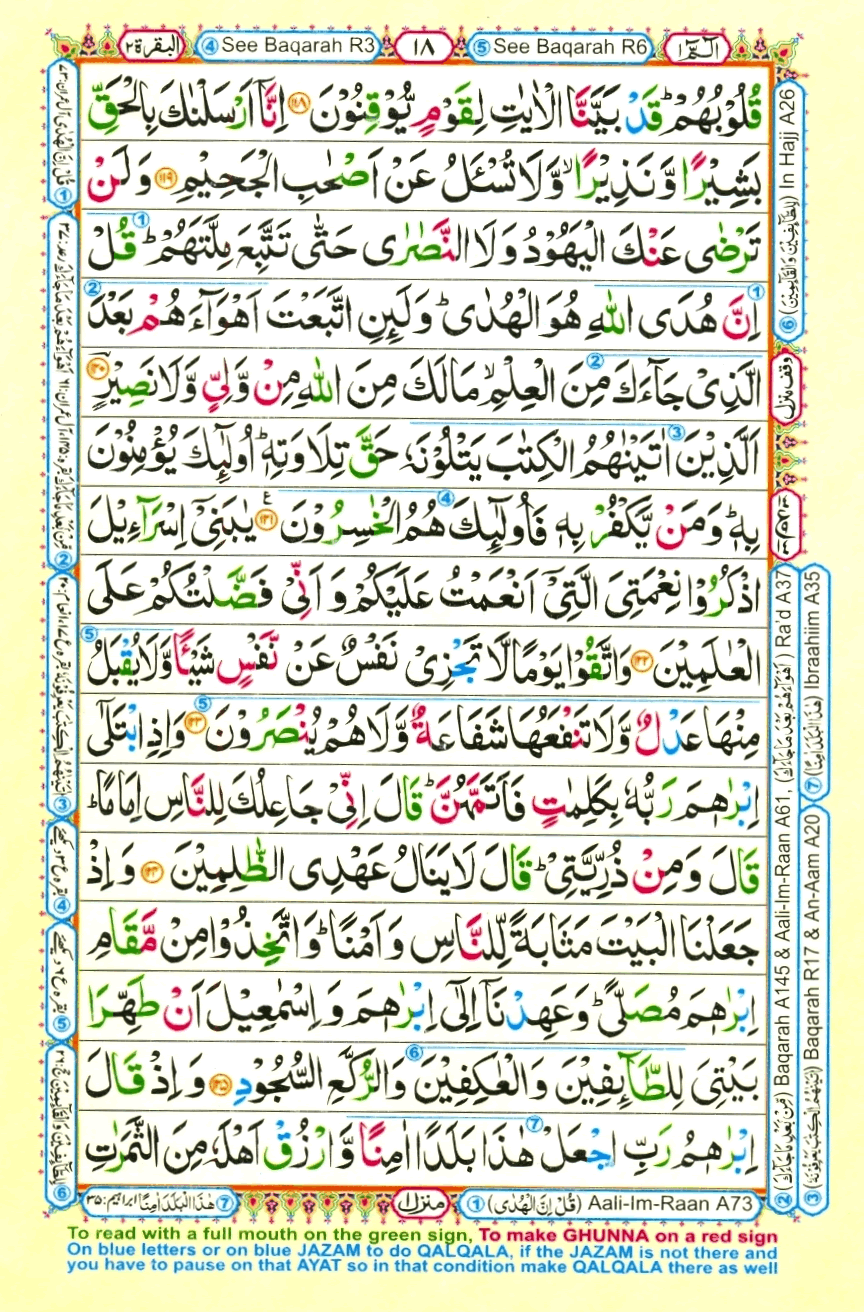 الٓمّٓ ١
⑤ See Baqarah R6
١٨
④ See Baqarah R3
البقرة ٢
قُلُوْبُهُمْ ؕ قَدْ بَيَّنَّا الْاٰيٰتِ لِقَوْمٍ يُّوْقِنُوْنَ ۝۱۱۸ اِنَّاۤ اَرْسَلْنٰكَ بِالْحَقِّ
بَشِيْرًا وَّ نَذِيْرًا ۙ وَّ لَا تُسْـَٔلُ عَنْ اَصْحٰبِ الْجَحِيْمِ ۝۱۱۹ وَ لَنْ
تَرْضٰى عَنْكَ الْيَهُوْدُ وَ لَا النَّصٰرٰى حَتّٰى تَتَّبِعَ مِلَّتَهُمْ ؕ قُلْ ①
اِنَّ هُدَى اللّٰهِ هُوَ الْهُدٰى ؕ وَ لَىِٕنِ اتَّبَعْتَ اَهْوَآءَهُمْ بَعْدَ ②
الَّذِىْ جَآءَكَ مِنَ الْعِلْمِ ۙ مَا لَكَ مِنَ اللّٰهِ مِنْ وَّلِىٍّ وَّ لَا نَصِيْرٍ ۝۱۲۰
اَلَّذِيْنَ ③ اٰتَيْنٰهُمُ الْكِتٰبَ يَتْلُوْنَهٗ حَقَّ تِلَاوَتِهٖ ؕ اُولٰٓىِٕكَ يُؤْمِنُوْنَ
بِهٖ ؕ وَ مَنْ يَّكْفُرْ بِهٖ فَاُولٰٓىِٕكَ ④ هُمُ الْخٰسِرُوْنَ ۝۱۲۱ ع يٰبَنِىْۤ اِسْرَآءِيْلَ
اذْكُرُوْا نِعْمَتِىَ الَّتِىْۤ اَنْعَمْتُ عَلَيْكُمْ وَ اَنِّىْ فَضَّلْتُكُمْ عَلَى
الْعٰلَمِيْنَ ۝۱۲۲ وَ اتَّقُوْا يَوْمًا لَّا تَجْزِىْ نَفْسٌ عَنْ نَّفْسٍ شَيْـًٔا وَّ لَا يُقْبَلُ ⑤
مِنْهَا عَدْلٌ وَّ لَا تَنْفَعُهَا شَفَاعَةٌ وَّ لَا هُمْ يُنْصَرُوْنَ ⑤ ۝۱۲۳ وَ اِذِ ابْتَلٰۤى
اِبْرٰهٖمَ رَبُّهٗ بِكَلِمٰتٍ فَاَتَمَّهُنَّ ؕ قَالَ اِنِّىْ جَاعِلُكَ لِلنَّاسِ اِمَامًا ؕ
قَالَ وَ مِنْ ذُرِّيَّتِىْ ؕ قَالَ لَا يَنَالُ عَهْدِى الظّٰلِمِيْنَ ۝۱۲۴ وَ اِذْ
جَعَلْنَا الْبَيْتَ مَثَابَةً لِّلنَّاسِ وَ اَمْنًا ؕ وَ اتَّخِذُوْا مِنْ مَّقَامِ
اِبْرٰهٖمَ مُصَلًّى ؕ وَ عَهِدْنَاۤ اِلٰٓى اِبْرٰهٖمَ وَ اِسْمٰعِيْلَ اَنْ طَهِّرَا
بَيْتِىَ لِلطَّآىِٕفِيْنَ ⑥ وَ الْعٰكِفِيْنَ وَ الرُّكَّعِ السُّجُوْدِ ۝۱۲۵ وَ اِذْ قَالَ
اِبْرٰهٖمُ رَبِّ اجْعَلْ ⑦ هٰذَا بَلَدًا اٰمِنًا وَّ ارْزُقْ اَهْلَهٗ مِنَ الثَّمَرٰتِ
⑥ (لِلطَّآىِٕفِيْنَ وَ الْقَآىِٕمِيْنَ) In Hajj A26
وقف منزل
② (مِنْۢ بَعْدِ مَا جَآءَكَ) Baqarah A145 & Aali-Im-Raan A61, (اَهْوَآءَهُمْ بَعْدَ مَا جَآءَكَ) Ra'd A37
③ (اٰتَيْنٰهُمُ الْكِتٰبَ يَعْرِفُوْنَهٗ) Baqarah R17 & An-Aam A20
⑦ (هٰذَا الْبَلَدَ اٰمِنًا) Ibraahiim A35
① (قُلْ اِنَّ الْهُدٰى) Aali-Im-Raan A73
منزل ١
⑦ هٰذَا الْبَلَدَ اٰمِنًا ابراہیم: ۳۵
To read with a full mouth on the green sign, To make GHUNNA on a red sign
On blue letters or on blue JAZAM to do QALQALA, if the JAZAM is not there and
you have to pause on that AYAT so in that condition make QALQALA there as well